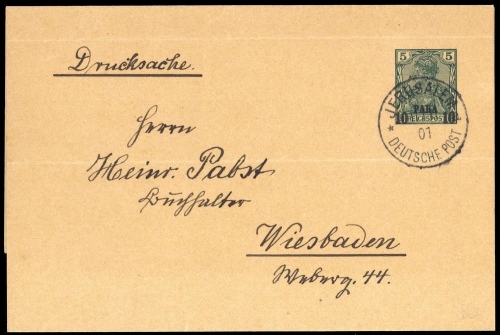 Drucksache.
5 5
10 PARA 10
REICHSPOST
JERUSALEM
01
* DEUTSCHE POST
Herrn
Heinr. Pabst
Buchhalter
Wiesbaden
Weberg. 44.